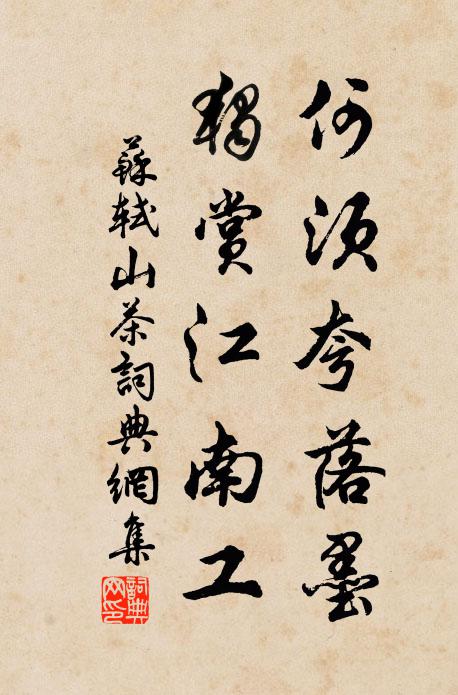 何須夸落墨
獨賞江南工
蘇軾山茶詞典網集
詞典網印